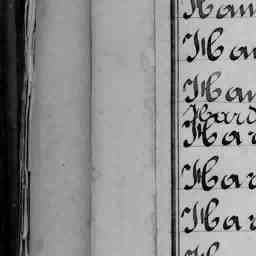 Ham
Ha
Han
Hard
Har
Har
Har